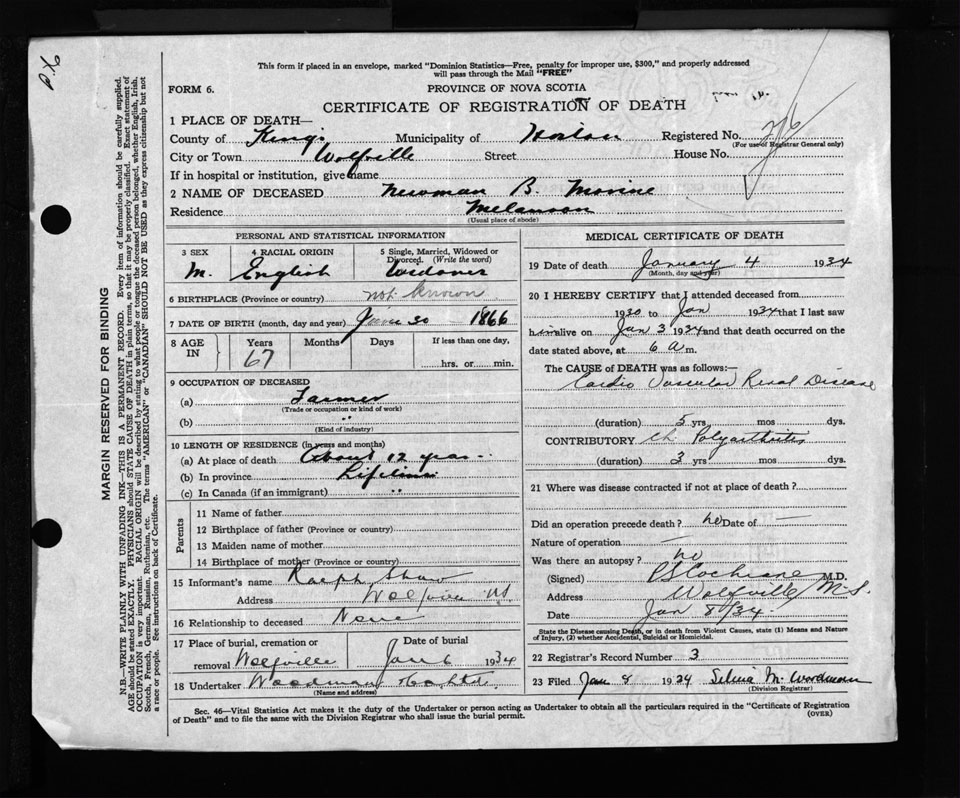 This form if placed in an envelope, marked "Dominion Statistics—Free, penalty for improper use, $300," and properly addressed
will pass through the Mail "FREE"
FORM 6.
PROVINCE OF NOVA SCOTIA
CERTIFICATE OF REGISTRATION OF DEATH
1 PLACE OF DEATH—
County of Kings Municipality of Horton Registered No. 216
(For use of Registrar General only)
City or Town Wolfville Street House No.
If in hospital or institution, give name
2 NAME OF DECEASED Newman B. Morine
Residence Melanson
(Usual place of abode)
PERSONAL AND STATISTICAL INFORMATION
3 SEX 4 RACIAL ORIGIN 5 Single, Married, Widowed or
Divorced. (Write the word)
M. English Widower
6 BIRTHPLACE (Province or country) not known
7 DATE OF BIRTH (month, day and year) 30 1866
8 AGE IN Years Months Days If less than one day,
67 hrs. or min.
9 OCCUPATION OF DECEASED
(a) Farmer
(Trade or occupation or kind of work)
(b) "
(Kind of industry)
10 LENGTH OF RESIDENCE (in years and months)
(a) At place of death About 12 years
(b) In province Lifetime
(c) In Canada (if an immigrant) "
Parents
11 Name of father
12 Birthplace of father (Province or country)
13 Maiden name of mother
14 Birthplace of mother (Province or country)
15 Informant's name Ralph Shaw
Address Wolfville N.S.
16 Relationship to deceased None
17 Place of burial, cremation or Date of burial
removal Wolfville Jan 6 1934
18 Undertaker Woodman
(Name and address)
MEDICAL CERTIFICATE OF DEATH
19 Date of death January 4 1934
(Month, day and year)
20 I HEREBY CERTIFY that I attended deceased from
1930 to Jan 1934 that I last saw
him alive on Jan 3 1934 and that death occurred on
date stated above, at 6 a m.
The CAUSE of DEATH was as follows:—
Cardio Vascular Renal Disease
(duration) 5 yrs mos dys.
CONTRIBUTORY Ch Polyarthritis
(duration) 3 yrs mos dys.
21 Where was disease contracted if not at place of death?
Did an operation precede death? no Date of —
Nature of operation —
Was there an autopsy? no
(Signed) Cochrane M.D.
Address Wolfville N.S.
Date Jan 8/34.
State the Disease causing Death, or in death from Violent Causes, state (1) Means and Nature
of Injury, (2) whether Accidental, Suicidal or Homicidal.
22 Registrar's Record Number 3
23 Filed Jan 8 1934 M. Woodman
(Division Registrar)
Sec. 46—Vital Statistics Act makes it the duty of the Undertaker or person acting as Undertaker to obtain all the particulars required in the "Certificate of Registration
of Death" and to file the same with the Division Registrar who shall issue the burial permit.
(OVER)
MARGIN RESERVED FOR BINDING
N.B.—WRITE PLAINLY WITH UNFADING INK—THIS IS A PERMANENT RECORD. Every item of information should be carefully supplied.
AGE should be stated EXACTLY. PHYSICIANS should STATE CAUSE OF DEATH in plain terms, so that it may be properly classified. Exact statement of
OCCUPATION is very important. RACIAL ORIGIN will be described by stating to what people or tongue the deceased person belonged, whether English, Irish,
Scotch, French, German, Russian, Ruthenian, etc. The terms "AMERICAN" or "CANADIAN" SHOULD NOT BE USED as they express citizenship but not
a race or people. See instructions on back of Certificate.